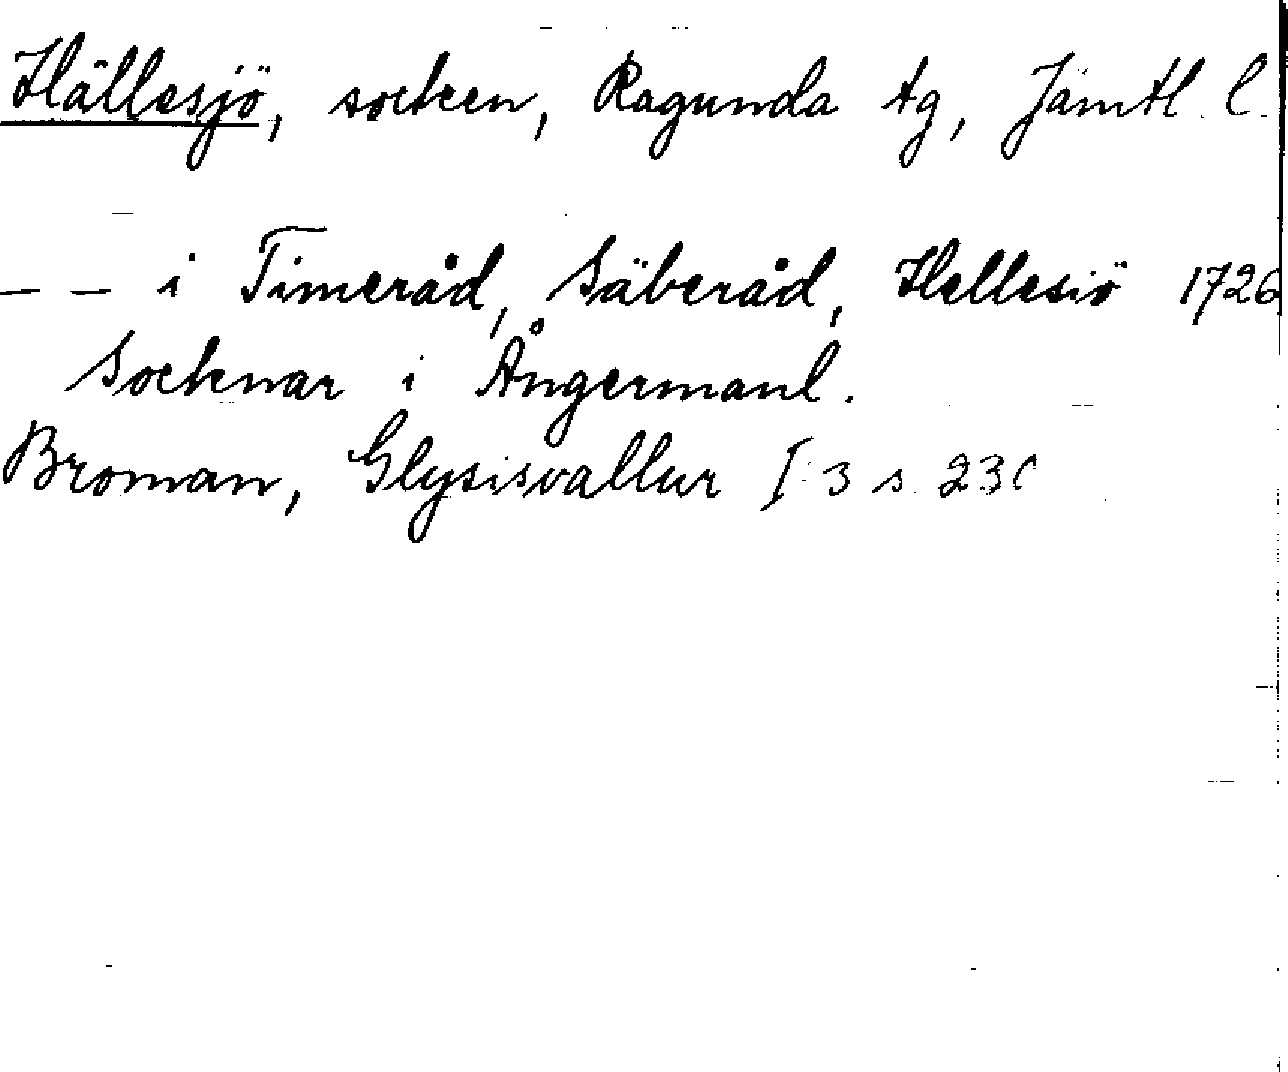 Hällesjö, socken, Ragunda tg, Jämtl. l.
– – i Timeråd, Säberåd, Hellesiö 1726
Socknar i Ångermanl.
Broman, Glysisvallur I: 3 s. 230